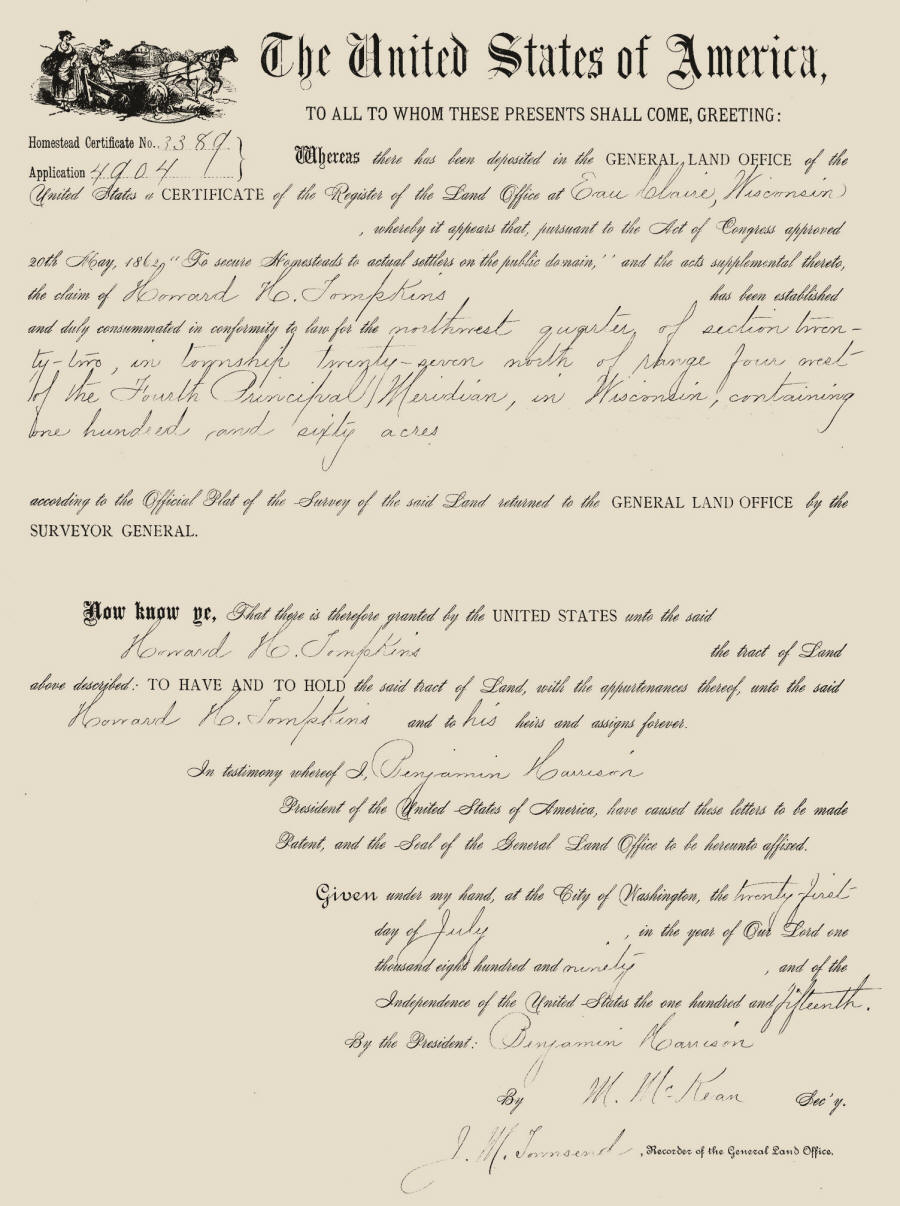 The United States of America,
TO ALL TO WHOM THESE PRESENTS SHALL COME, GREETING:
Homestead Certificate No. 3389
Application 4904
Whereas there has been deposited in the GENERAL LAND OFFICE of the
United States a CERTIFICATE of the Register of the Land Office at Eau Claire, Wisconsin
, whereby it appears that, pursuant to the Act of Congress approved
20th May, 1862, "To secure Homesteads to actual settlers on the public domain," and the acts supplemental thereto,
the claim of Howard H. Tompkins has been established
and duly consummated in conformity to law for the northwest quarter, of section twen-
ty-two, in township twenty-seven north of range four west
of the Fourth Principal Meridian, in Wisconsin, containing
one hundred and sixty acres
according to the Official Plat of the Survey of the said Land returned to the GENERAL LAND OFFICE by the
SURVEYOR GENERAL.
Now know ye, That there is therefore granted by the UNITED STATES unto the said
Howard H. Tompkins the tract of Land
above described: TO HAVE AND TO HOLD the said tract of Land, with the appurtenances thereof, unto the said
Howard H. Tompkins and to his heirs and assigns forever.
In testimony whereof I, Benjamin Harrison
President of the United States of America, have caused these letters to be made
Patent, and the Seal of the General Land Office to be hereunto affixed.
Given under my hand, at the City of Washington, the twenty-first
day of July , in the year of Our Lord one
thousand eight hundred and ninety , and of the
Independence of the United States the one hundred and fifteenth.
By the President: Benjamin Harrison
By M. McKean Sec'y.
J. M. Townsend , Recorder of the General Land Office.